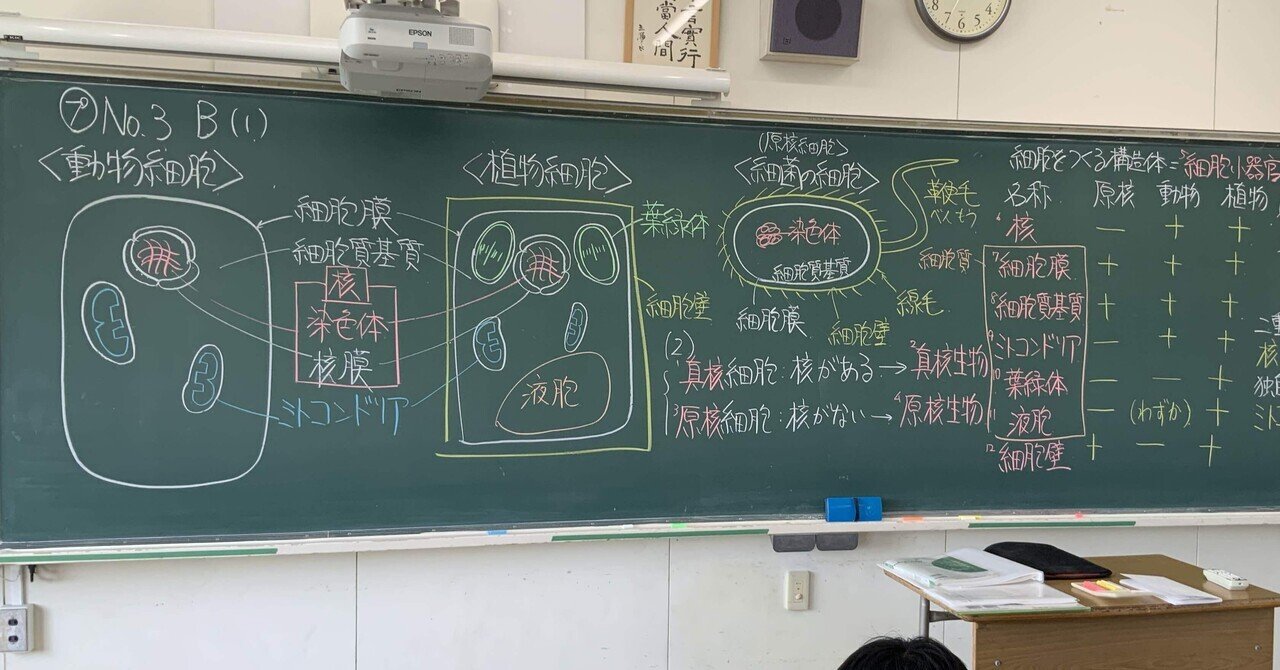 EPSON
言實行
當人間
㋐No.3 B(1)
<動物細胞>
細胞膜
細胞質基質
核
染色体
核膜
ミトコンドリア
<植物細胞>
葉緑体
細胞壁
液胞
(原核細胞)
<細菌の細胞>
鞭毛
べんもう
染色体
細胞質基質
細胞膜
細胞壁
線毛
(2)
真核細胞:核がある→²真核生物
³原核細胞:核がない→⁴原核生物
細胞をつくる構造体=⁵細胞小器官
名称 原核 動物 植物
⁶核 − + +
細胞質
⁷細胞膜 + + +
⁸細胞質基質 + + +
⁹ミトコンドリア − + +
¹⁰葉緑体 − − +
¹¹液胞 − (わずか) +
¹²細胞壁 + − +
核
独自
ミト